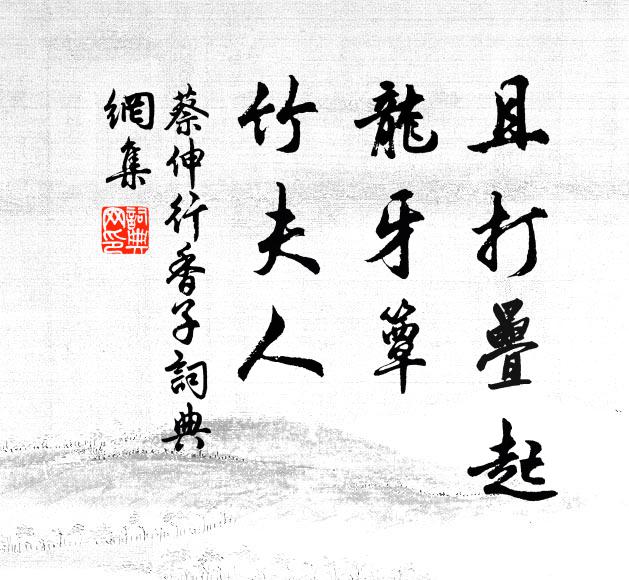 且打疊起
龍牙簟
竹夫人
蔡伸行香子詞典
網集
詞典
网印